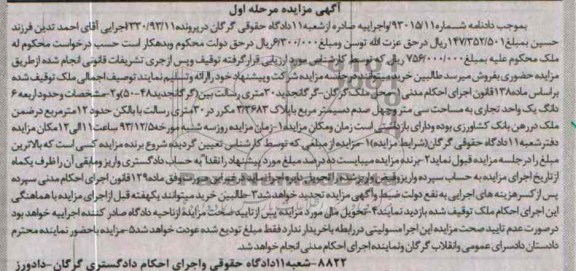 آگهی مزایده مرحله اول
بموجب دادنامه شماره ۹۳۰۱۵/۱۱ واجراییه صادره ازشعبه ۱۱ دادگاه حقوقی گرگان درپرونده ۳۳۰/۹۳/۱۱ اجرایی آقای احمد تدین فرزند
حسین بمبلغ ۱۴۷/۳۵۲/۵۰۱ ریال درحق عزت الله توسن ومبلغ ۶/۳۰۰/۰۰۰ ریال درحق دولت محکوم وبدهکار است حسب درخواست محکوم له
ملک محکوم علیه بمبلغ ۷۵۶/۰۰۰/۰۰۰ ریال که توسط کارشناس مورد ارزیابی قرارگرفته توقیف وپس ازجری تشریفات قانونی انجام شده ازطریق
مزایده حضوری بفروش میرسد طالبین خرید میتوانند درجلسه مزایده شرکت وپیشنهاد خود راارائه وتسلیم نمایند توصیف اجمالی ملک توقیف شده
براساس ماده ۱۳۸ قانون اجرای احکام مدنی ۱-محل ملک گرگان-گرگانجدید ۳۰ متری رسالت بین (گرگانجدید ۴۸-۵۰) و ۲-مشخصات وحدوداربعه ۶
دانگ یک واحد تجاری به مساحت سی متر وچهل صدم دسیمتر مربع باپلاک ۳/۳۶۸۳ مکرر در ۳۰ متری رسالت با بالکن حدود ۱۲ مترمربع در ضمن
ملک دررهن بانک کشاورزی بوده ودارای بازداشتی است زمان ومکان مزایده ۱-زمان مزایده روزسه شنبه مورخه ۹۳/۱۲/۵ ساعت ۱۱ الی ۱۲ مکان مزایده
دفترشعبه ۱۱ دادگاه حقوقی گرگان (شرایط مزایده) ۱-مزایده از مبلغی که توسط کارشناس تعیین گردیده شروع برنده مزایده کسی است که بالاترین
مبلغ را درجلسه مزایده قبول نماید ۲-برنده مزایده میبایست ده درصد مبلغ مورد پیشنهاد رانقدا به حساب دادگستری واریز ومابقی آن راظرف یکماه
ازتاریخ اجرای مزایده به حساب سپرده واریز وفیش واریز شده را تحویل دایره اجرا نماید درغیراین صورت وفق ماده ۱۲۹ قانون اجرای احکام مدنی سپرده
پس ازکسرهزینه های اجرایی به نفع دولت ضبط وآگهی مزایده تجدید خواهدشد ۳-طالبین خرید میتوانند یکهفته قبل ازاجرای مزایده با هماهنگی
این اجرای احکام ملک توقیف شده بازدید نمایند ۴-تحویل مال مورد مزایده پس ازتایید صحت مزایده ازناحیه دادگاه صادر کننده اجراییه خواهد بود
درصورت عدم تایید صحت مزایده این اجرا مسولیتی دررابطه باخریدار ندارد فقط مبلغ تودیع شده عودت خواهدشد ۵-مزایده باحضور نماینده محترم
دادستان دادسرای عمومی وانقلاب گرگان ونماینده اجرای احکام مدنی انجام خواهدشد.
۸۸۲۲-شعبه ۱۱ دادگاه حقوقی واجرای احکام دادگستری گرگان-دادورز